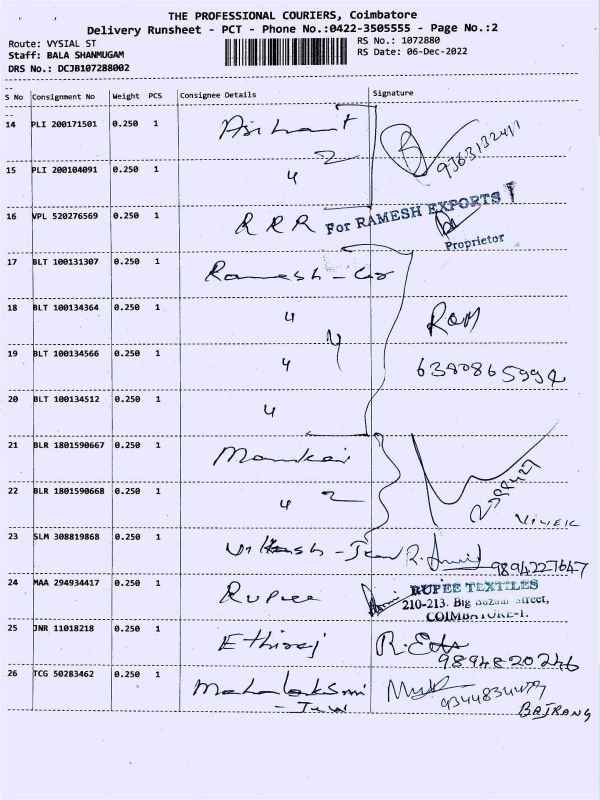 THE PROFESSIONAL COURIERS, Coimbatore
Delivery Runsheet - PCT - Phone No.:0422-3505555 - Page No.:2
Route: VYSIAL ST
RS No.: 1072880
Staff: BALA SHANMUGAM
RS Date: 06-Dec-2022
DRS No.: DCJB107288002
S No Consignment No Weight PCS Consignee Details Signature
14 PLI 200171501 0.250 1 Arihant
15 PLI 200104091 0.250 1 4 2
16 VPL 520276569 0.250 1 RRR For RAMESH EXPORTS
Proprietor
17 BLT 100131307 0.250 1 Ramesh - Car
18 BLT 100134364 0.250 1 4 Ram
19 BLT 100134566 0.250 1 4 4
20 BLT 100134512 0.250 1 4
21 BLR 1801590667 0.250 1
22 BLR 1801590668 0.250 1 4 2 VIVEK
23 SLM 308819868 0.250 1 9894227647
24 MAA 294934417 0.250 1 Rupee RUPEE TEXTILES
210-213, Big Bazaar Street,
COIMBATORE-1.
25 JNR 11018218 0.250 1 Ethiraj
9894820246
26 TCG 50283462 0.250 1 Mahalakshmi
BAJRANG